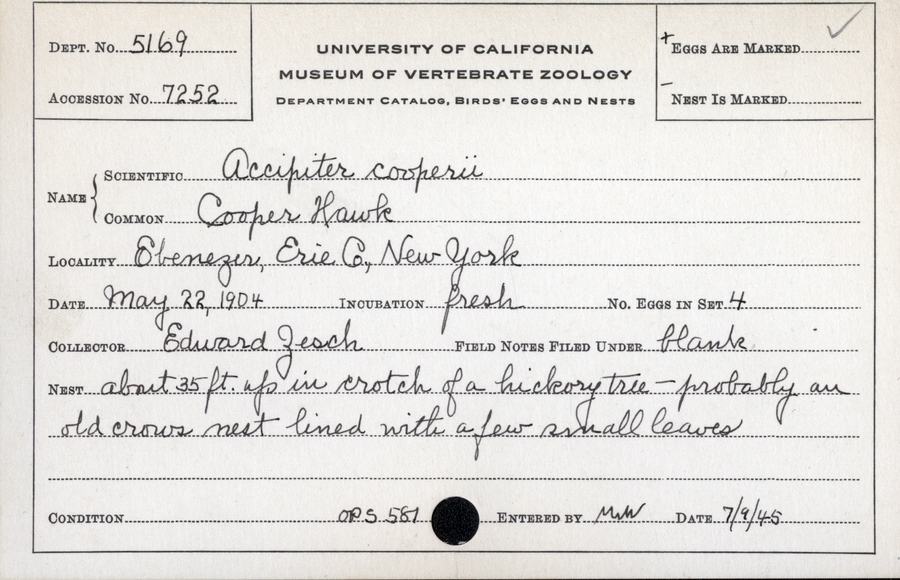 DEPT. NO. 5169
ACCESSION NO. 7252
UNIVERSITY OF CALIFORNIA
MUSEUM OF VERTEBRATE ZOOLOGY
DEPARTMENT CATALOG, BIRDS' EGGS AND NESTS
+ EGGS ARE MARKED ✓
- NEST IS MARKED
NAME { SCIENTIFIC Accipiter cooperii
COMMON Cooper Hawk
LOCALITY Ebenezer, Erie Co., New York
DATE May 22, 1904 INCUBATION fresh NO. EGGS IN SET 4
COLLECTOR Edward Zesch FIELD NOTES FILED UNDER blank
NEST about 35 ft. up in crotch of a hickory tree – probably an
old crows nest lined with a few small leaves
CONDITION OPS 581 ENTERED BY MWW DATE 7/9/45